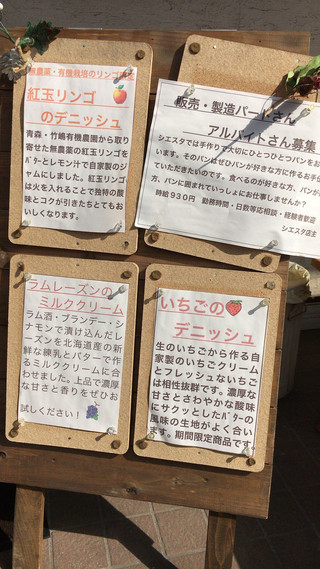 無農薬・有機栽培のリンゴ使用
紅玉リンゴ
のデニッシュ
青森・竹嶋有機農園から取り
寄せた無農薬の紅玉リンゴを
バターとレモン汁で自家製のジ
ャムにしました。紅玉リンゴ
は火を入れることで独特の酸
味とコクが引きたちとてもお
いしくなります。
販売・製造パートさん
アルバイトさん募集
シエスタでは手作りで大切にひとつひとつパンをお
います。そのパンはぜひパンが好きな方に作るお手伝
ていただきたいのです。食べるのが好きな方、パンが
方、パンに囲まれていっしょにお仕事しませんか？
時給930円 勤務時間・日数等応相談・経験者歓迎
シエスタ店主
ラムレーズンの
ミルククリーム
ラム酒・ブランデー・シ
ナモンで漬け込んだレ
ーズンを北海道産の新
鮮な練乳とバターで作
るミルククリームに合
わせました。上品で濃厚
な甘さと香りをぜひお
試しください！
いちごの
デニッシュ
生のいちごから作る自
家製のいちごクリーム
とフレッシュないちご
は相性抜群です。濃厚な
甘さとさわやかな酸味
にサクッとしたバターの
風味の生地がよく合い
ます。期間限定商品です